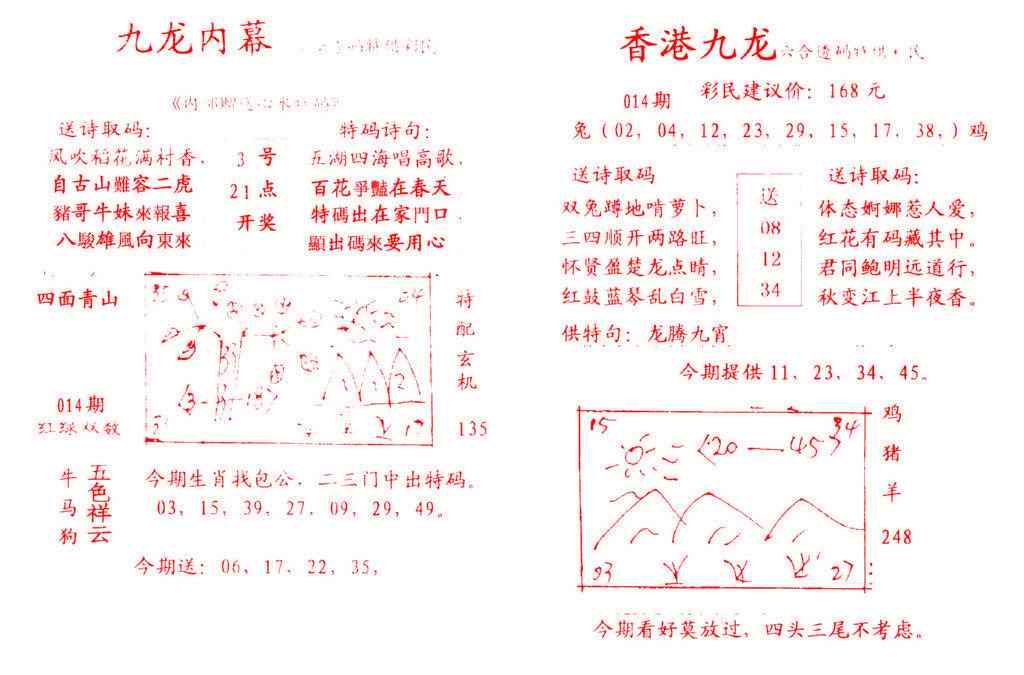 九龙内幕
送诗取码:
风吹稻花满村香.
自古山難容二虎
豬哥牛妹來報喜
八駿雄風向東來
3 号
21 点
开奖
特码诗句:
五湖四海唱高歌.
百花爭豔在春天
特碼出在家門口.
顯出碼來要用心
四面青山
014期
红绿双数
牛
马
狗
五色祥云
35
24
特配玄机
135
今期生肖找包公. 二三门中出特码。
03, 15, 39, 27. 09, 29, 49。
今期送: 06、17、22, 35,
香港九龙
014期
彩民建议价: 168 元
兔 (02, 04, 12, 23, 29, 15, 17, 38,) 鸡
送诗取码
双兔蹲地啃萝卜,
三四顺开两路旺,
怀贤盈楚龙点睛,
红鼓蓝琴乱白雪,
送
08
12
34
送诗取码:
体态婀娜惹人爱,
红花有码藏其中。
君同鲍明远道行,
秋变江上半夜香。
供特句: 龙腾九宵
今期提供 11、23、34、45。
15
34
20—45
93
27
鸡
猪
羊
248
今期看好莫放过, 四头三尾不考虑。